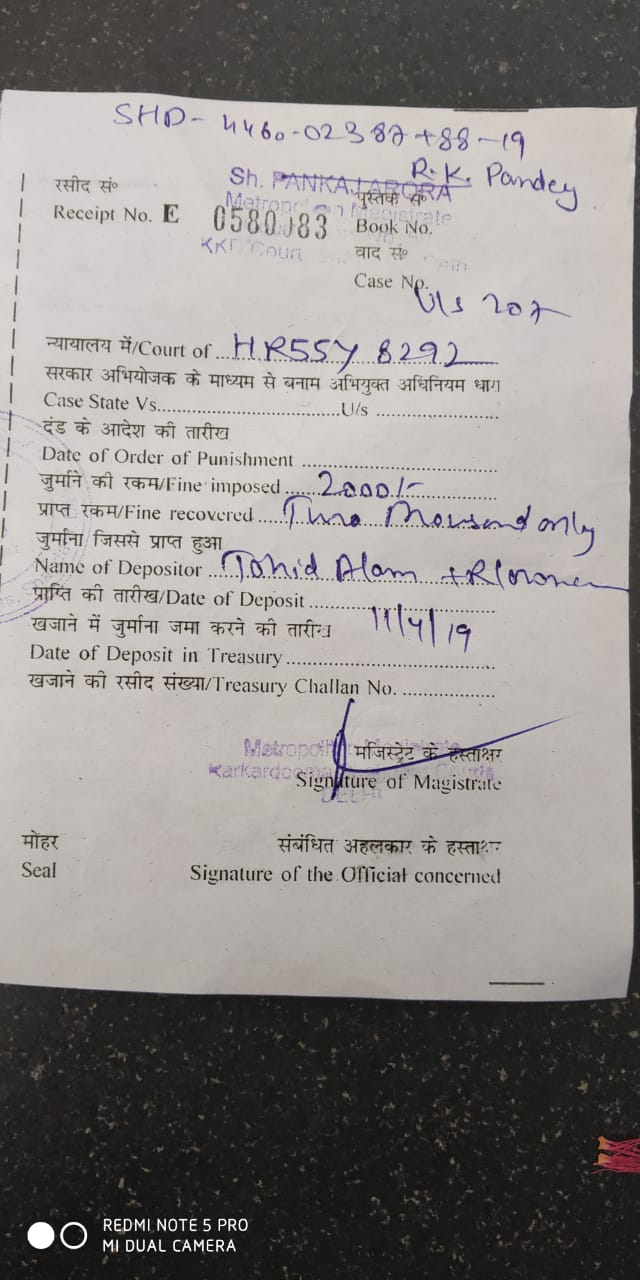 SHD - 4460-02387+88-19
R.K. Pandey
Sh. PANKAJ ARORA
रसीद सं० पुस्तक सं०
Metropolitan Magistrate
Receipt No. E 0580083 Book No.
KKD Court
वाद सं०
Case No.
U/s 207
न्यायालय में/Court of HR55Y 8292
सरकार अभियोजक के माध्यम से बनाम अभियुक्त अधिनियम धारा
Case State Vs..............................U/s ....................
दंड के आदेश की तारीख
Date of Order of Punishment ................................
जुर्माने की रकम/Fine imposed 2000/-
प्राप्त रकम/Fine recovered Two Thousand only
जुर्माना जिससे प्राप्त हुआ
Name of Depositor Tohid Alam
प्राप्ति की तारीख/Date of Deposit 11/4/19
खजाने में जुर्माना जमा करने की तारीख
Date of Deposit in Treasury..................................
खजाने की रसीद संख्या/Treasury Challan No. ................
Metropolitan
मजिस्ट्रेट के हस्ताक्षर
Karkardooma Courts
Signature of Magistrate
DELHI
मोहर संबंधित अहलकार के हस्ताक्षर
Seal Signature of the Official concerned
REDMI NOTE 5 PRO
MI DUAL CAMERA